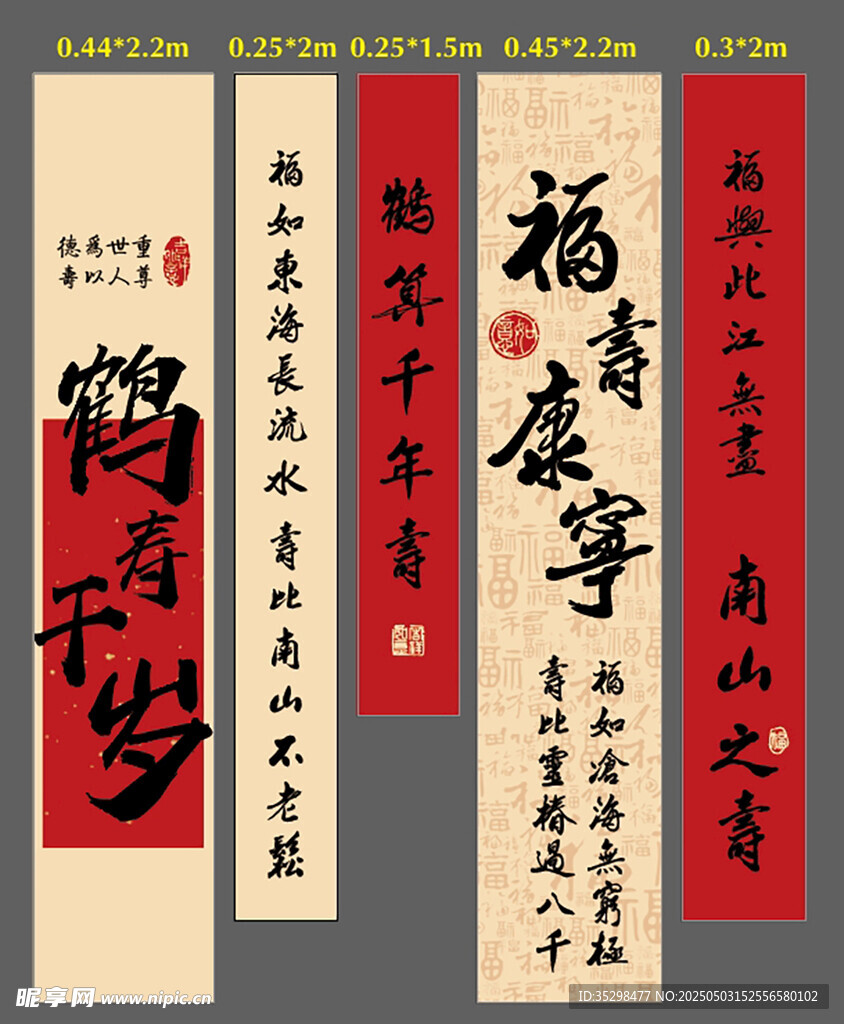 0.44*2.2m
0.25*2m
0.25*1.5m
0.45*2.2m
0.3*2m
德爲世重
壽以人尊
吉祥如意
鹤寿千岁
福如東海長流水
壽比南山不老鬆
鶴算千年壽
福壽康寧
如意
福如滄海無窮極
壽比靈椿過八千
福與此江無盡
南山之壽
福
昵享网 www.nipic.cn
ID:35298477 NO:20250503152556580102